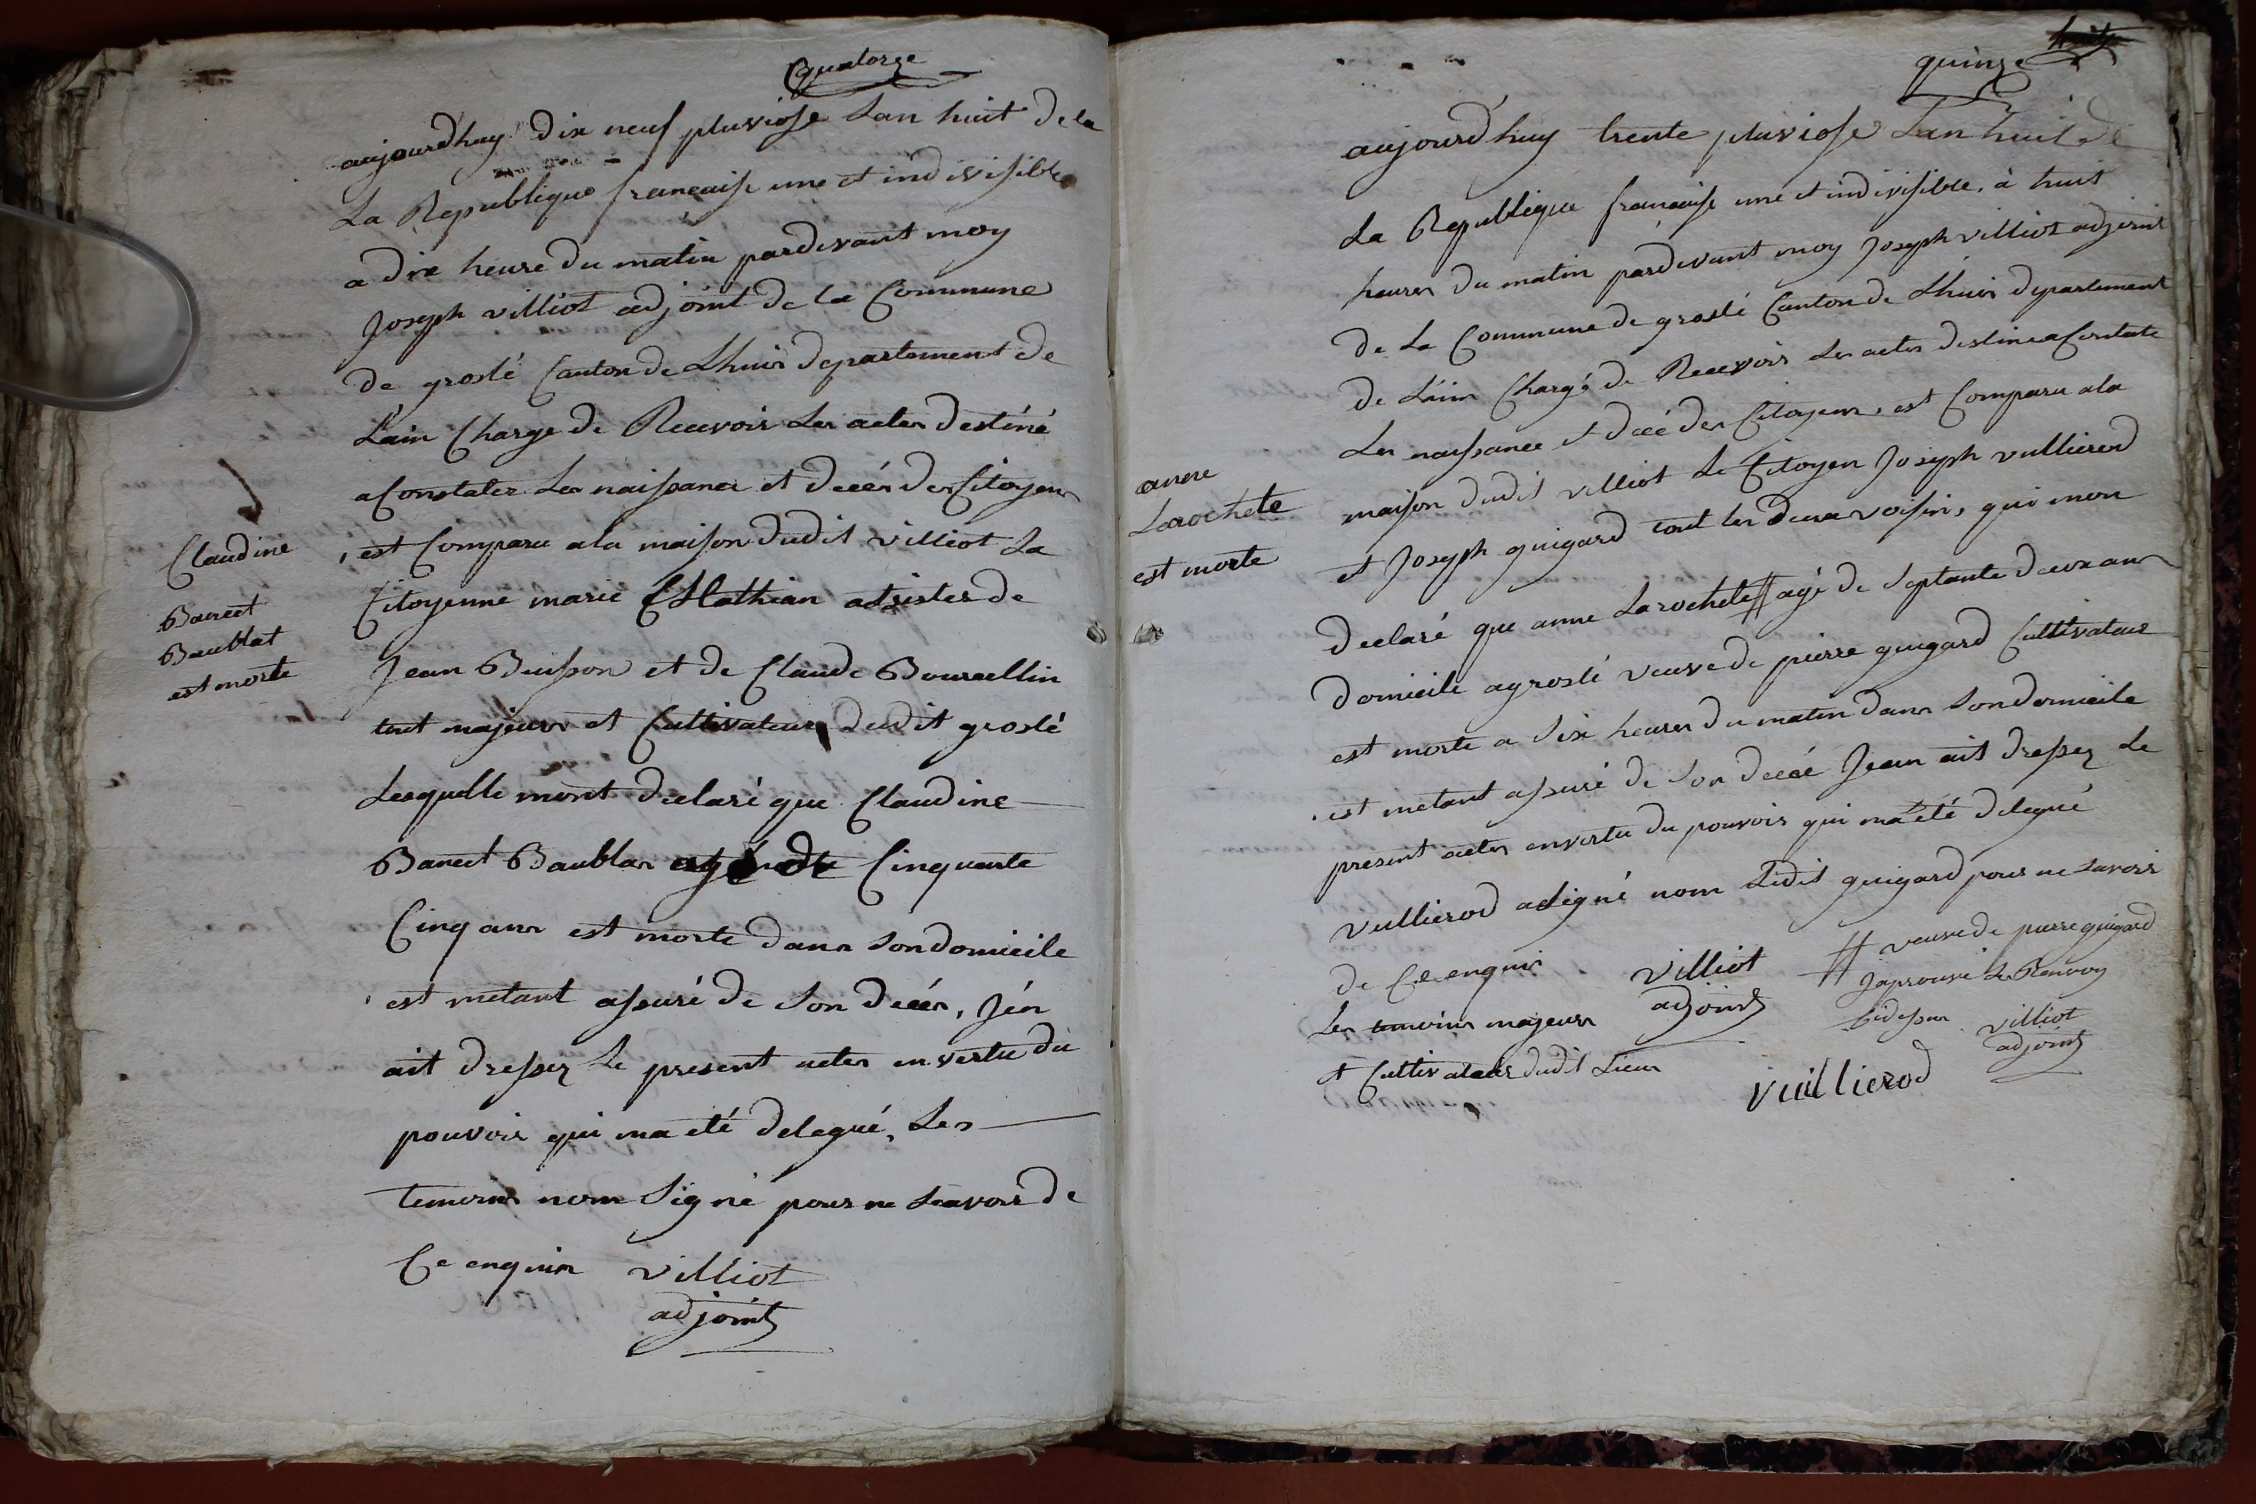 quatorze
aujourd'huy dix neuf pluviose Lan huit de la
La Republique francaise une et indivisible
a dix heure du matin pardevant moy
Joseph villiot adjoint de la Commune
de groslé Canton de Lhuis departement de
L'ain Charge de Recevoir Les actes destiné
a Constater Les naissance et decés des Citoyens
est Comparu a la maison dudit villiot La
Citoyenne marie Mathian adsister de
Jean Buisson et de Claude Bourcellin
tout majeurs et Cultivateurs dudit groslé
Lesquelle mont declaré que Claudine
Banet Baublas agé de Cinquante
Cinq ans est morte dans son domicile
est metant assuré de son decés, Jén
ait dressez Le present actes en vertu du
pouvoir qui ma eté delegué, Les
temoins nom Signé pour ne Scavoir de
Ce enquis villiot
adjoint
Claudine
Banet
Baublat
est morte
huit
quinze
aujourd'huy trente pluviose Lan huit de
La Republique francaise une et indivisible, à huit
heures du matin pardevant moy Joseph villiot adjoint
de La Commune de groslé Canton de Lhuis departement
de L'ain Chargé de Recevoir Les actes destine a Contate
Les naissance et decé des Citoyens, est Comparu a la
maison dudit villiot Le Citoyen Joseph vullierod
et Joseph guigard tout les deux voisins, qui mon
declaré que anne Larochete # agé de septante deux ans
domicile a groslé veuve de pierre guigard Cultivateur
est morte a Six heures du matin dans Son domicile
est metant assuré de Son decée Jean ait dressez Le
present actes en vertu du pouvoir qui ma été delegué
vullierod a signé nom Ledit guigard pour ne Savoir
de Ce enquis
Les temoins majeurs
et Cultivateur dudit Lieux
villiot
adjoint
# veuve de pierre guigard
Japrouve Le Renvoy
Cidessus villiot
adjoint
vuillierod
anne
Larochete
est morte